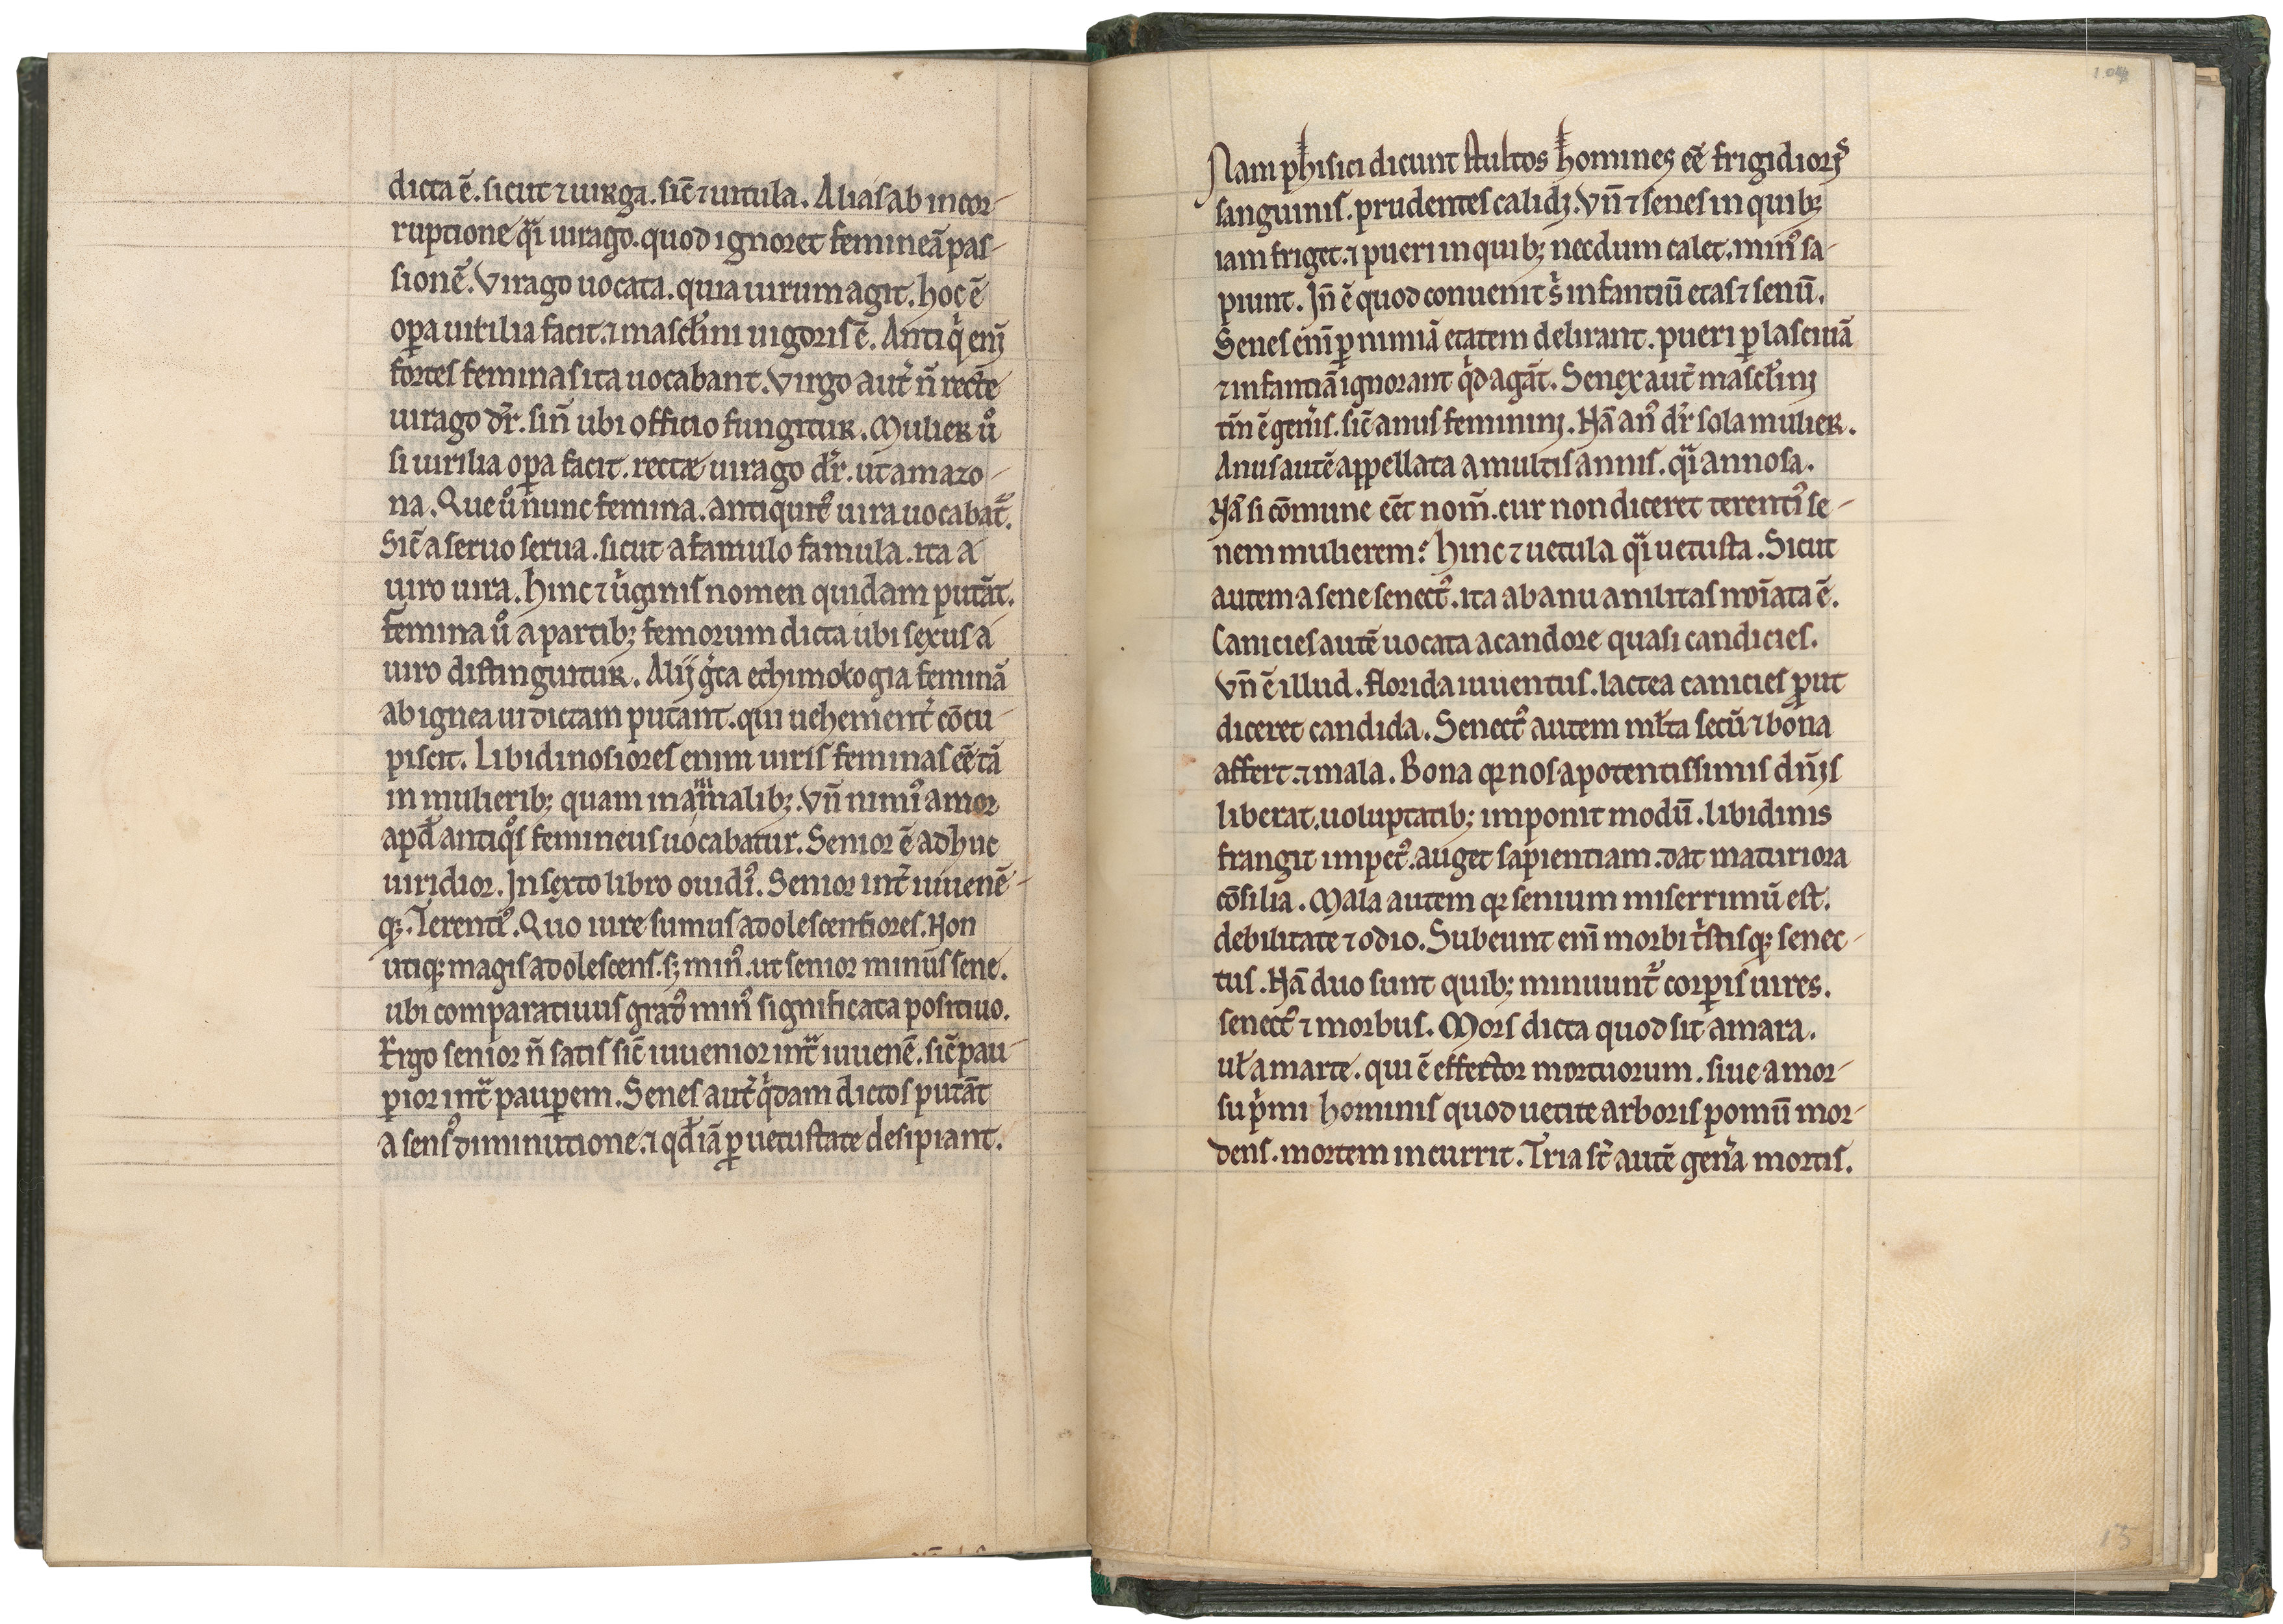 dicta ē. sicut ⁊ uirga. sic̄ ⁊ uitula. Alias ab incor-
ruptione qͣi uirago. quod ignoret femineā pas-
sionē. Virago uocata. quia uirum agit. hoc ē
oꝑa uirilia facit. ⁊ masc̄lini uigoris ē. Antiqͥ enī
fortes feminas ita uocabant. Virgo aut̄ n̄ recte
uirago dr̄. sin̄ ubi officio fungitur. Mulier uͦ
si uirilia oꝑa facit. rectæ uirago dr̄. ut amazo-
na. Que uͦ nunc femina. antiquitꝰ uira uocabat᷑.
Sic̄ a seruo serua. sicut a famulo famula. ita a
uiro uira. hinc ⁊ uͥginis nomen quidam putāt.
Femina uͦ a partibꝫ femorum dicta ubi sexus a
uiro distinguitur. Alij gͥca ethimologia feminā
ab ignea ui dictam putant. qui uehement᷑ cōcu-
piscit. Libidinosiores enim uiris feminas eē tā
in mulieribꝫ quam in animalibꝫ. Vn̄ nimiꝰ amor
apd̄ antiqͦs femineus uocabatur. Senior ē adhuc
uiridior. In sexto libro ouidiꝰ. Senior int᷑ iuuenē-
qꝫ. Terentiꝰ. Quo iure sumus adolescentiores. Non
utiqꝫ magis adolescens. sꝫ minꝰ. ut senior minus sene.
ubi comparatiuus gradꝰ minꝰ significata positiuo.
Ergo senior n̄ satis sic̄ iuuenior intͣ iuuenē. sic̄ pau-
pior intͣ pauꝑem. Senes aut̄ qͥdam dictos putāt
a sensꝰ diminutione. ⁊ qd̄ iā ꝑ uetustate desipiant.
Nam phisici dicunt stultos homines eē frigidiorꝭ
sanguinis. prudentes calidi. Vn̄ ⁊ senes in quibꝫ
iam friget. ⁊ pueri in quibꝫ necdum calet. minꝰ sa-
piunt. In̄ ē quod conuenit sͥ infantiū etas ⁊ senū.
Senes enī ꝑ nimiā etatem delirant. pueri ꝑ lasciuiā
⁊ infantiā ignorant qͥd agāt. Senex aut̄ masc̄lini
tm̄ ē genͥis. sic̄ anus feminini. Nā anꝰ dr̄ sola mulier.
Anus autē appellata a multis annis. qͣi annosa.
Nā si cōmune eēt nom̄. cur non diceret terentiꝰ se-
nem mulierem? hinc ⁊ uetula qͣi uetusta. Sicut
autem a sene senectꝰ. ita ab anu anilitas noīata ē.
Canicies autē uocata a candore quasi candicies.
Vn̄ ē illud. florida iuuentus. lactea canicies ꝓut
diceret candida. Senectꝰ autem ml̄ta secū ⁊ bona
affert. ⁊ mala. Bona qꝛ nos a potentissimis dn̄is
liberat. uoluptatibꝫ imponit modū. libidinis
frangit impetꝰ. auget sapientiam. dat maturiora
cōsilia. Mala autem qꝛ senium miserrimū est.
debilitate ⁊ odio. Subeunt enī morbi tͥstisqꝫ senec-
tus. Nā duo sunt quibꝫ minuunt᷑ corꝑis uires.
senectꝰ ⁊ morbus. Mors dicta quod sit amara.
ul̄ a marte. qui ē effector mortuorum. siue a mor-
su pͥmi hominis quod uetite arboris pomū mor-
dens. mortem incurrit. Tria st̄ autē genͥa mortis.
104
15